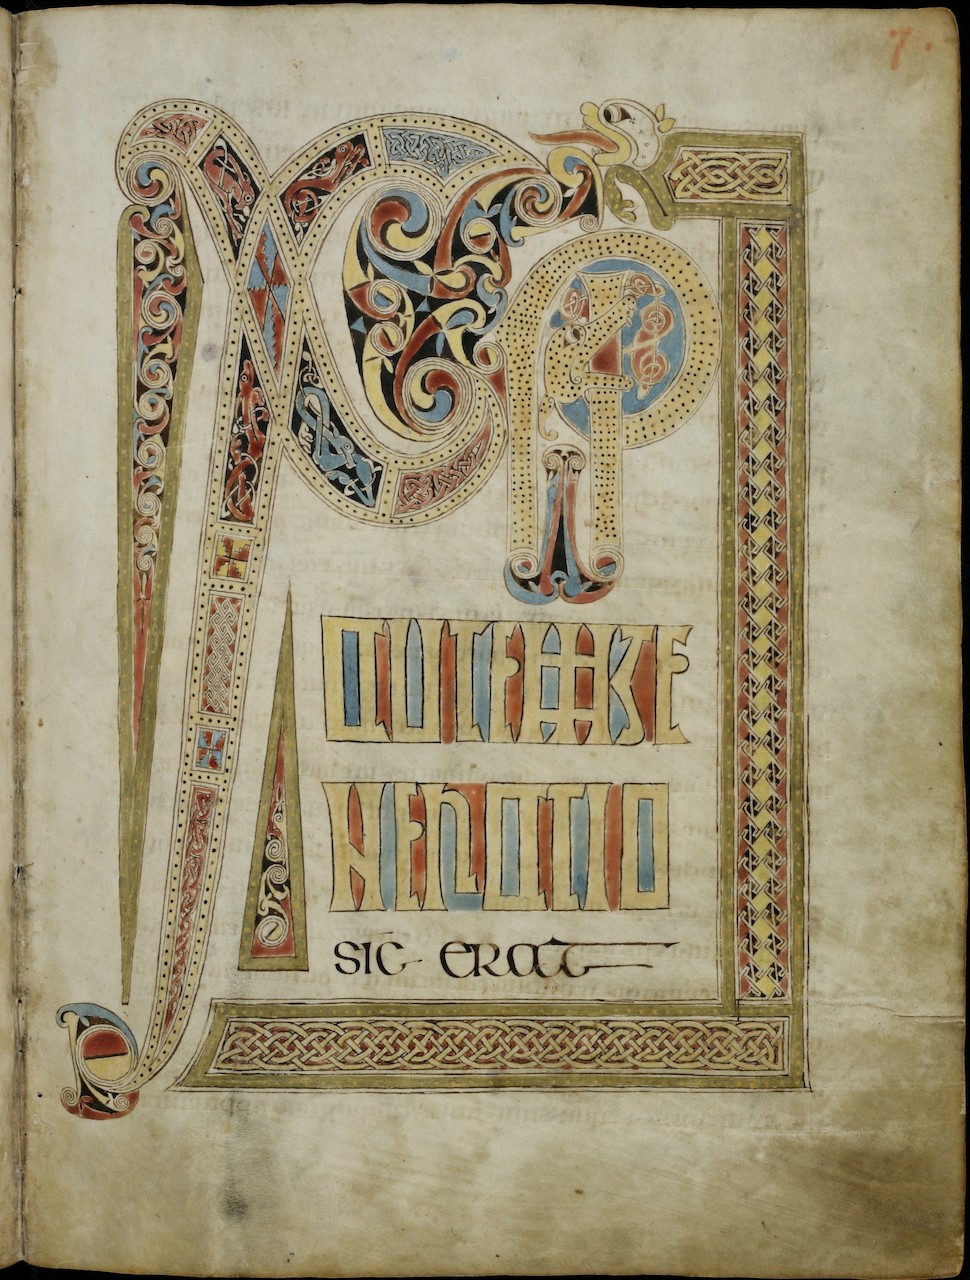 7.
XPI
AUTEM GE
NERATIO
SIC ERAT